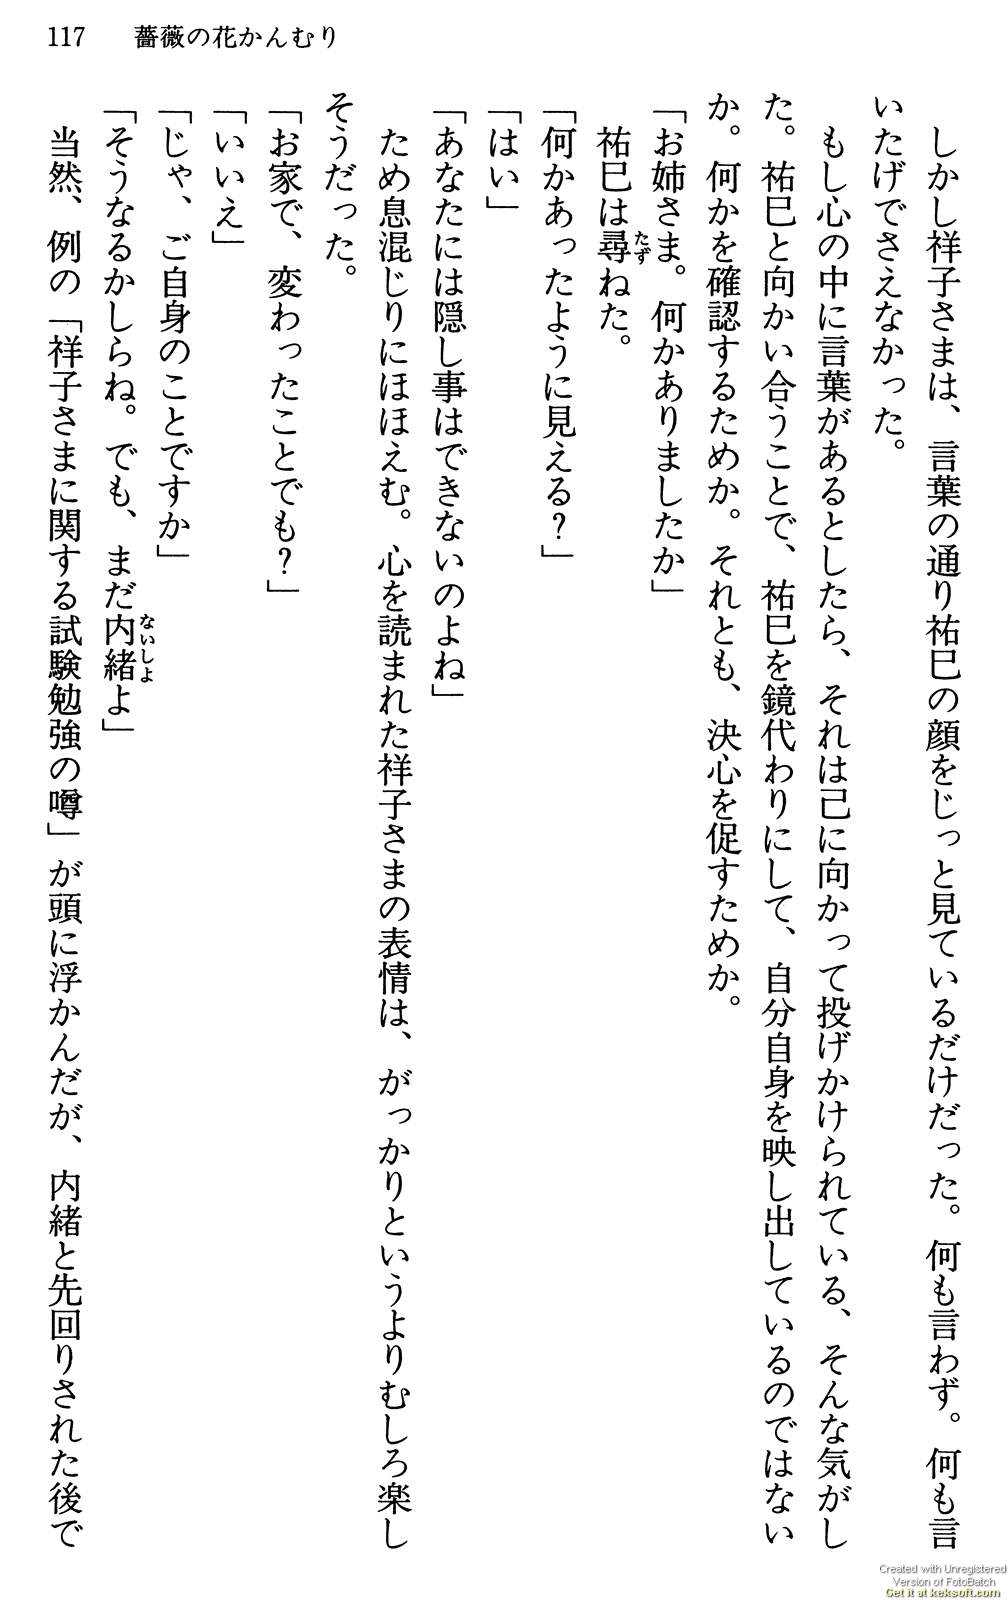 117　薔薇の花かんむり
　しかし祥子さまは、言葉の通り祐巳の顔をじっと見ているだけだった。何も言わず。何も言
いたげでさえなかった。
　もし心の中に言葉があるとしたら、それは己に向かって投げかけられている、そんな気がし
た。祐巳と向かい合うことで、祐巳を鏡代わりにして、自分自身を映し出しているのではない
か。何かを確認するためか。それとも、決心を促すためか。
「お姉さま。何かありましたか」
　祐巳は尋ねた。
たず
「何かあったように見える？」
「はい」
「あなたには隠し事はできないのよね」
　ため息混じりにほほえむ。心を読まれた祥子さまの表情は、がっかりというよりむしろ楽し
そうだった。
「お家で、変わったことでも？」
「いいえ」
「じゃ、ご自身のことですか」
「そうなるかしらね。でも、まだ内緒よ」
ないしよ
　当然、例の「祥子さまに関する試験勉強の噂」が頭に浮かんだが、内緒と先回りされた後で
Created with Unregistered
Version of FotoBatch
Get it at keksoft.com